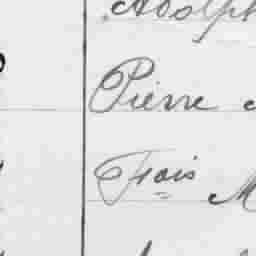 Adolph
Pierre
Frais M